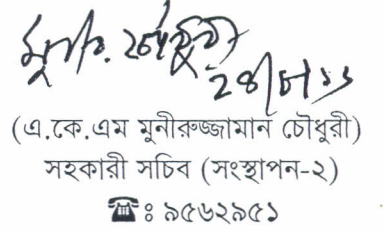 মুনীর চৌধুরী
২৪/৮/১১
(এ.কে.এম মুনীরুজ্জামান চৌধুরী)
সহকারী সচিব (সংস্থাপন-২)
☎ঃ ৯৫৬২৯৫১